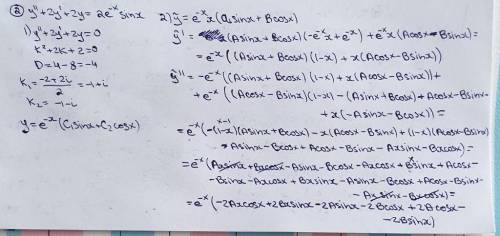 ② y''+2y'+2y=2e^-x sinx
1) y''+2y'+2y=0
k²+2k+2=0
D=4-8=-4
k₁=(-2+2i)/2=-1+i
k₂=-1-i
y=e^-x(C₁sinx+C₂cosx)
2) ỹ=e^-x x(Asinx+Bcosx)
ỹ'=(Asinx+Bcosx)(-e^-x x+e^-x)+e^-x x(Acosx-Bsinx)=
=e^-x((Asinx+Bcosx)(1-x)+x(Acosx-Bsinx))
ỹ''=-e^-x((Asinx+Bcosx)(1-x)+x(Acosx-Bsinx))+
+e^-x((Acosx-Bsinx)(1-x)-(Asinx+Bcosx)+Acosx-Bsinx+
+x(-Asinx-Bcosx))=
=e^-x(-(1-x)(Asinx+Bcosx)-x(Acosx-Bsinx)+(1-x)(Acosx-Bsinx)-
-Asinx-Bcosx+Acosx-Bsinx-Axsinx-Bxcosx)=
=e^-x(Axsinx+Bxcosx-Asinx-Bcosx-Axcosx+Bxsinx+Acosx-
-Bsinx-Axcosx+Bxsinx-Asinx-Bcosx+Acosx-Bsinx-
-Axsinx-Bxcosx)=
=e^-x(-2Axcosx+2Bxsinx-2Asinx-2Bcosx+2Acosx-
-2Bsinx)